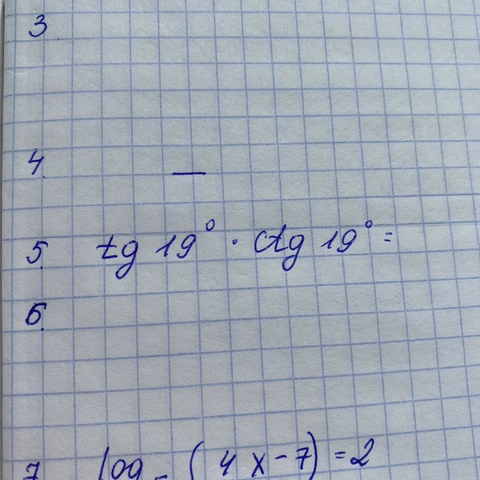 3
4. —
5. tg 19° · ctg 19° =
6.
7. log (4x-7) = 2